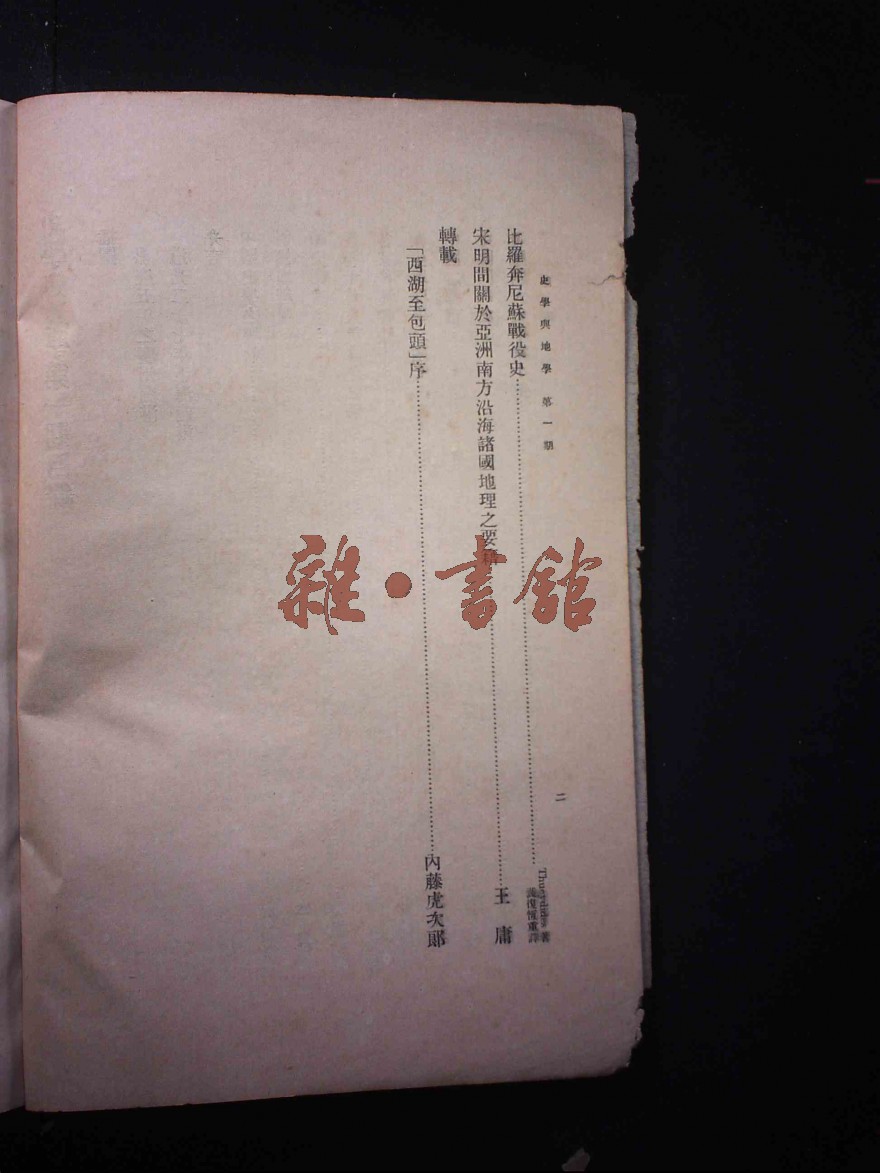 史學與地學 第一期
二
比羅奔尼蘇戰役史……Thucydides 著
復恆重譯
宋明間關於亞洲南方沿海諸國地理之要籍……王庸
轉載
「西湖至包頭」序……內藤虎次郎
雜·書館